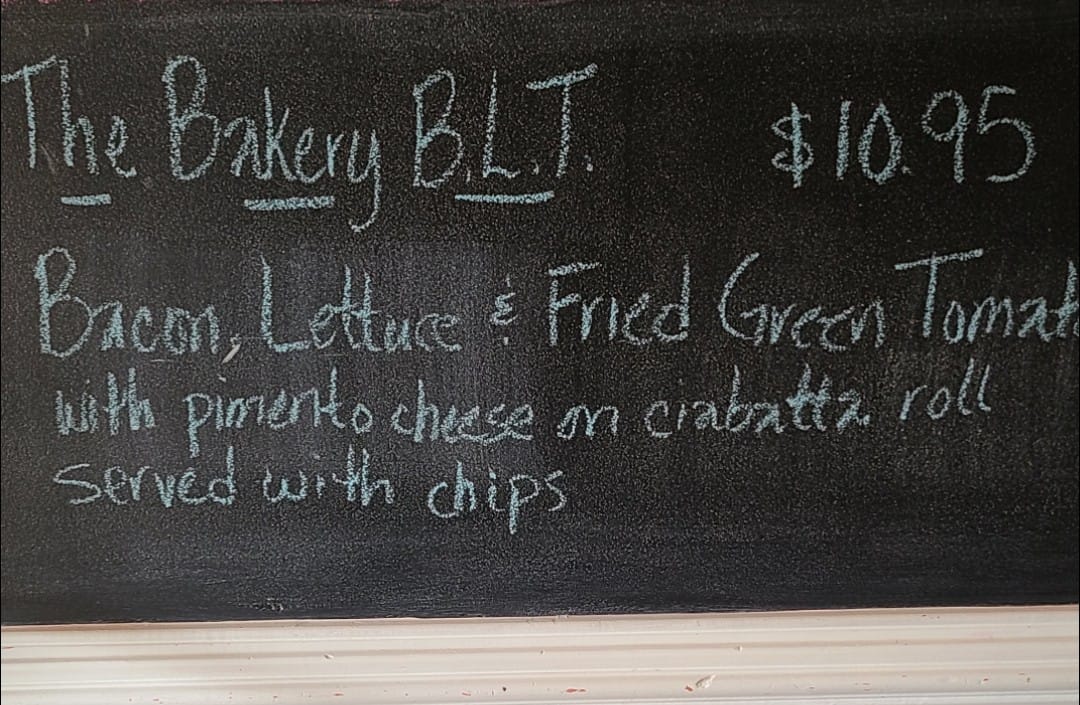 The Bakery B.L.T. $10.95
Bacon, Lettuce & Fried Green Tomat
with pimento cheese on ciabatta roll
served with chips